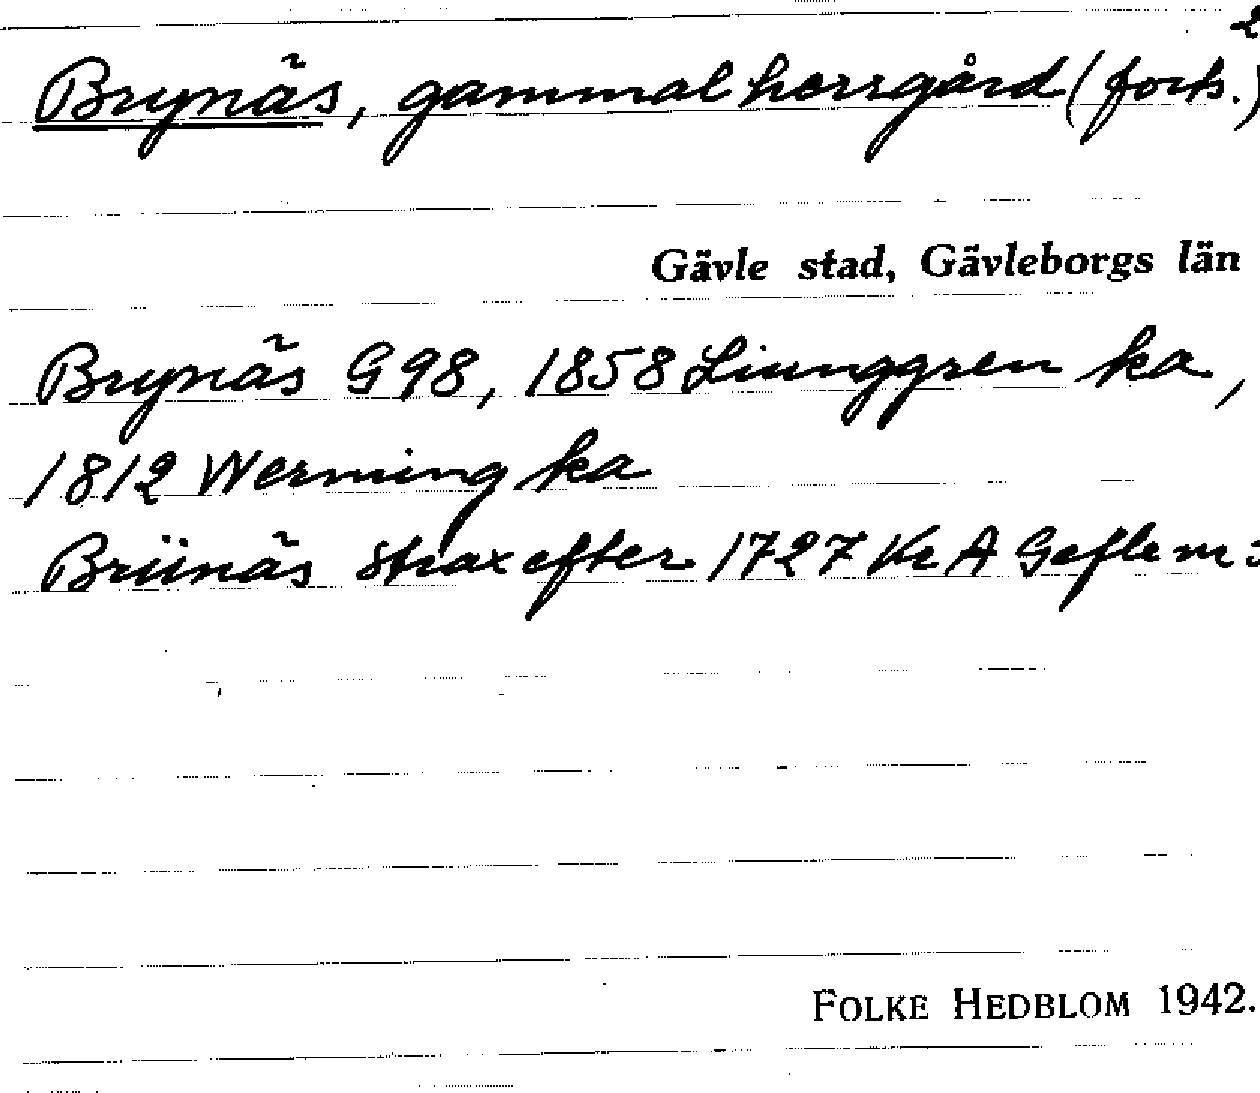 2
Brynäs, gammal herrgård (forts.)
Gävle stad, Gävleborgs län
Brynäs G98, 1858 Liunggren ka,
1812 Werming ka
Brÿnäs strax efter 1727 Kr A Gefle m
FOLKE HEDBLOM 1942.